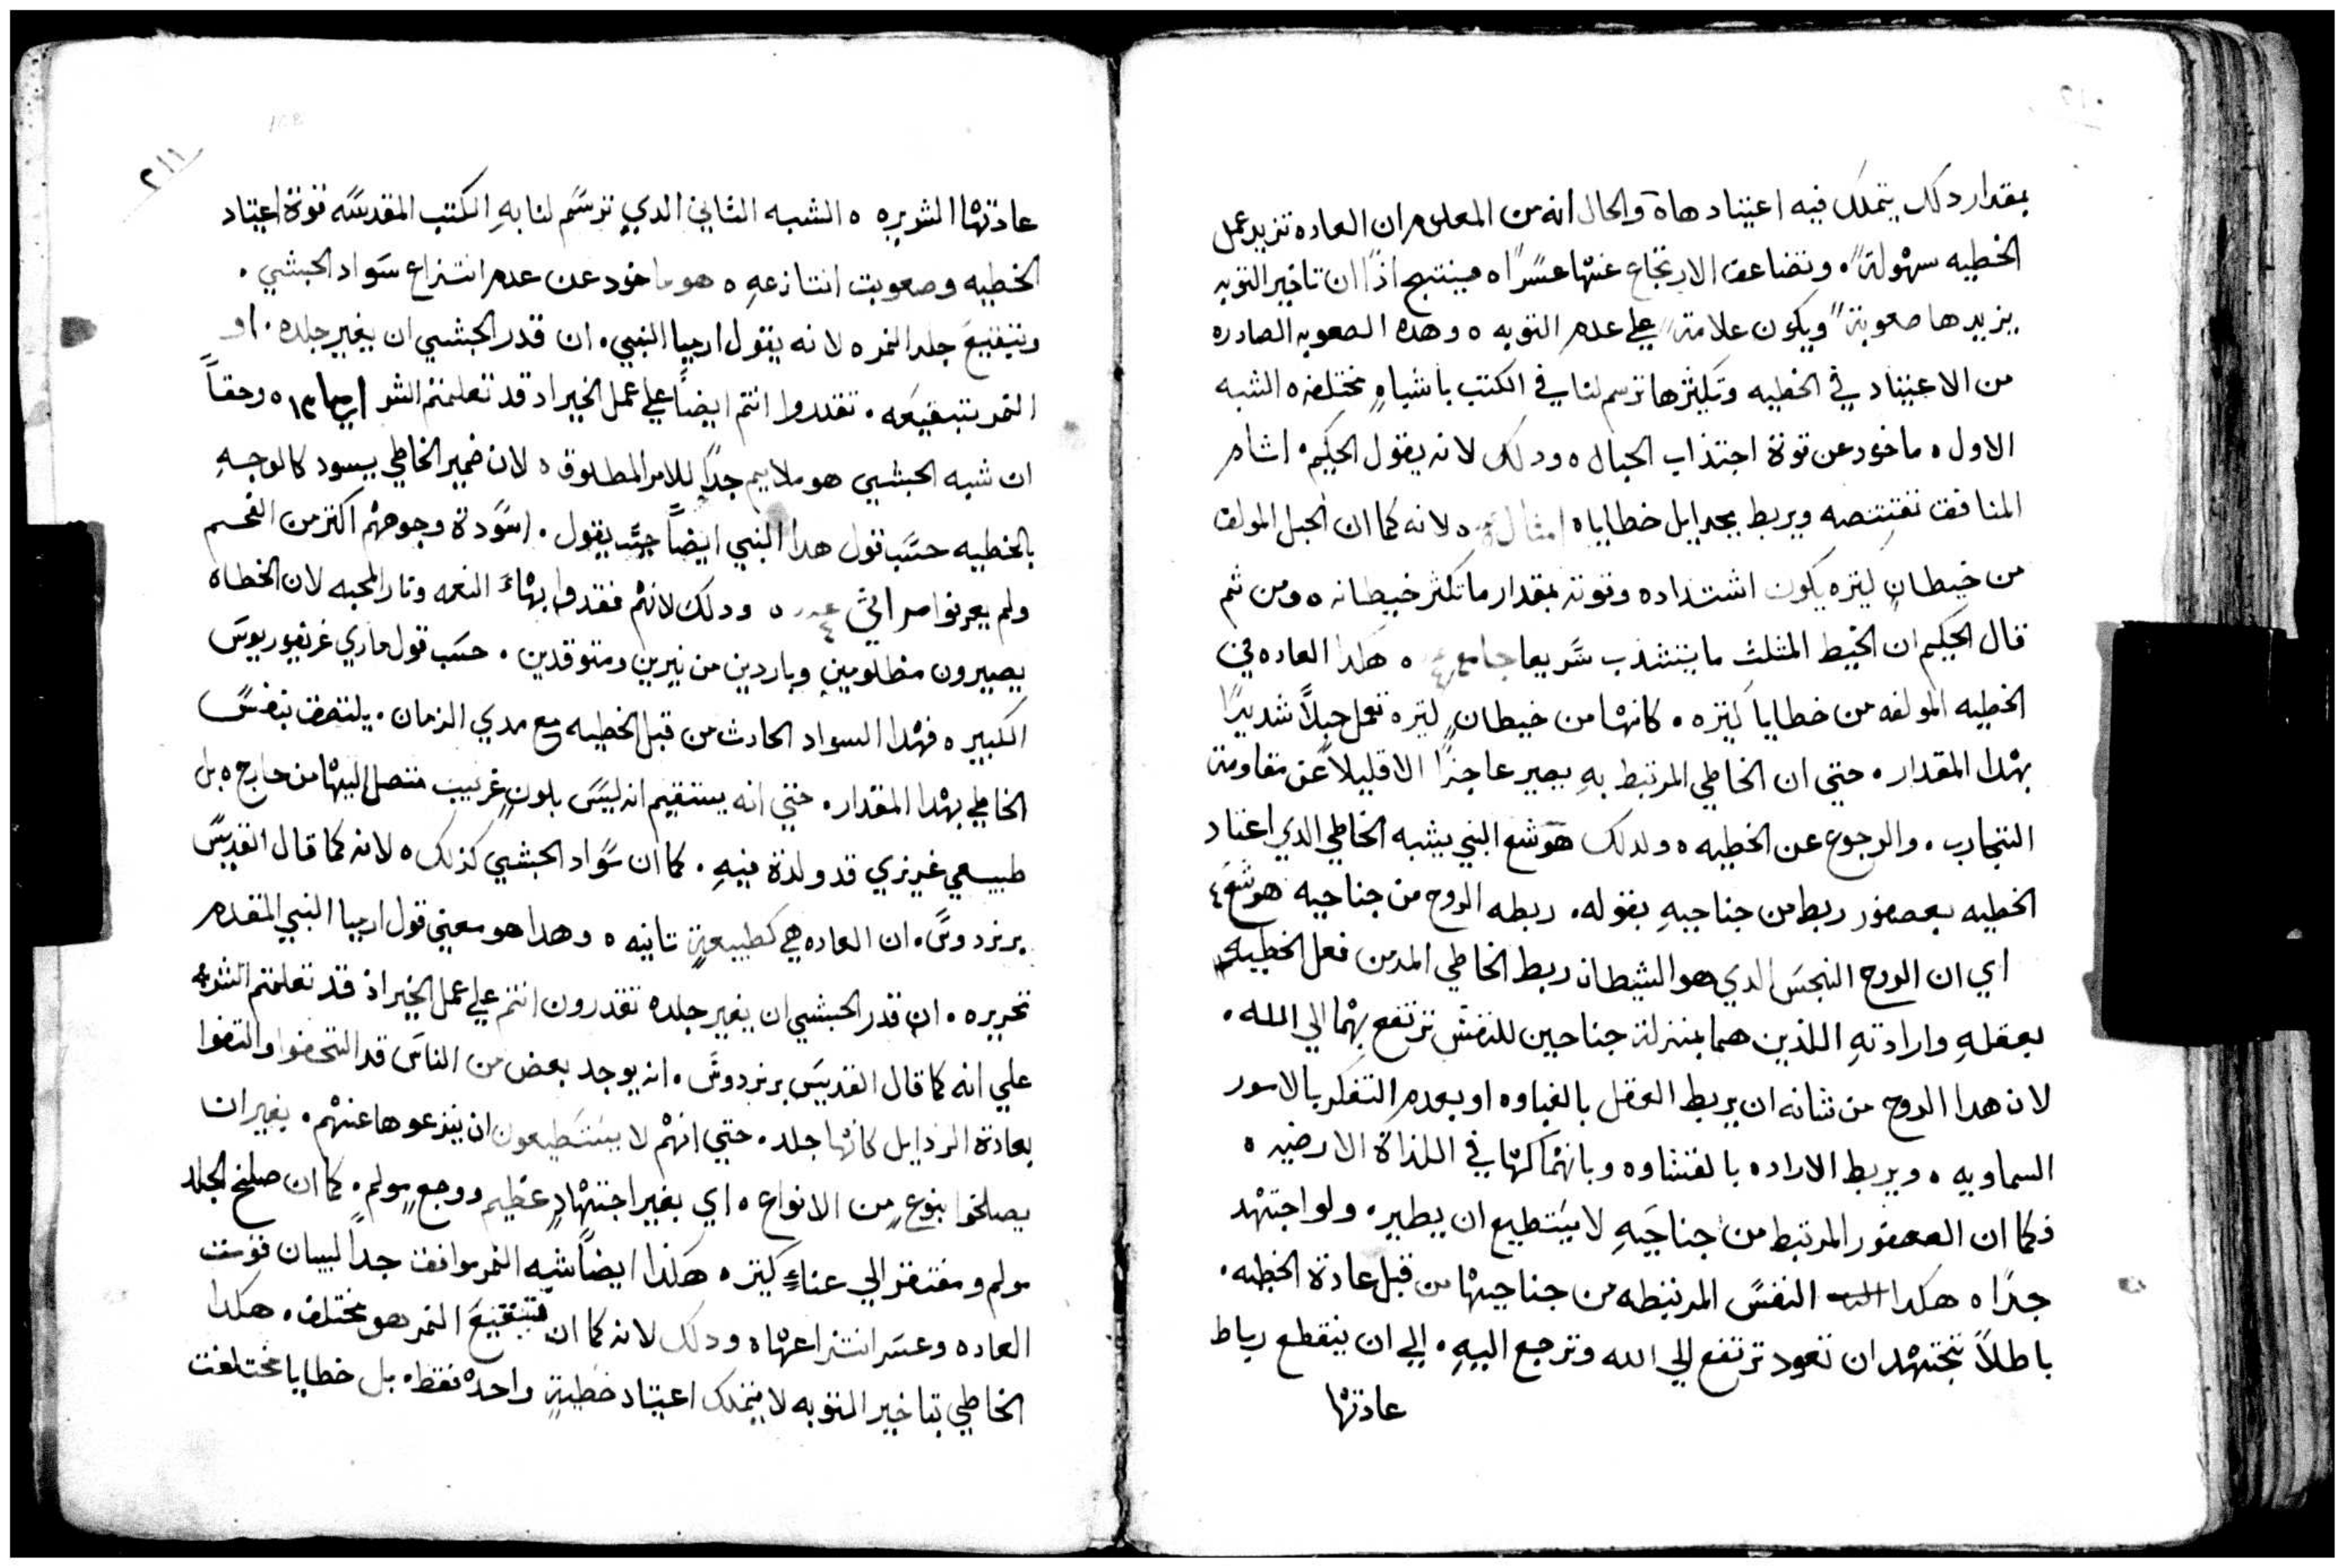 بمقدار دلك يتملك فيه اعتياد هاة والحال انه من المعلوم ان العاده تزيد عمل
الخطيه سهولةً. وتضاعف الارتجاع عنها عسراً ه فينتج اذاً ان تاخير التوبه
يزيدها صعوبةً ويكون علامةً علي عدم التوبه ه وهده الصعوبه الصادره
من الاعتياد في الخطيه وتكثرها ترسم لنا في الكتب باشباهٍ مختلفه ه الشبه
الاول ه ماخود عن قوة اجتذاب الحبال ه ودلك لانه يقول الحكيم. اثام
المنافق تقتنصه ويربط بجدايل خطاياه امثال ه لانه كما ان الحبل المولف
من خيطانٍ كتيره يكون اشتداده وقوته بمقدار ما تكثر خيطانه ه ومن ثم
قال الحكيم ان الخيط المثلث ما ينشذب سريعا جامعه ٤ ه هكدا العاده في
الخطيه المولفه من خطايا كتيره. كانها من خيطانٍ كتيره تعمل حبلاً شديدًا
بهدا المقدار. حتي ان الخاطي المرتبط بهِ يصير عاجزًا الا قليلاً عن مقاومة
التجارب. والرجوع عن الخطيه ه ولدلك هوشع النبي يشبه الخاطي الدي اعتاد
الخطيه بعصفور ربط من جناحيهِ بقوله. ربطه الروح من جناحيه هوشع ٤
اي ان الروح النجس الدي هو الشيطان ربط الخاطي المدمن فعل الخطيه
بعقلهِ وارادتهِ اللذين هما بمنزلة جناحين للنفس ترتفع بهما الي الله.
لان هدا الروح من شانه ان يربط العقل بالغباوه او بعدم التفكر بالامور
السماويه ه ويربط الاراده بالقشاوه وبانهماكها في اللذاة الارضيه ه
فكما ان العصفور المرتبط من جناحَيهِ لا يستطيع ان يطير. ولو اجتهد
جداً ه هكدا النفس المرتبطه من جناحيها من قبل عادة الخطيه.
باطلاً تجتهد ان تعود ترتفع الي الله وترجع اليهِ. الي ان ينقطع رباط
عادتها
٢١١
108
عادتها الشريره ه الشبه التاني الدي ترسم لنا بهِ الكتب المقدسه قوة اعتياد
الخطيه وصعوبت انتازعهِ ه هو ماخود عن عدم انتزاع سواد الحبشي.
وتبقيع جلد النمر ه لانه يقول ارميا النبي. ان قدر الحبشي ان يغير جلده. او
النمر تبقيعه. تقدروا انتم ايضاً علي عمل الخير اد قد تعلمتم الشر ارميا ١٣ ه وحقاً
ان شبه الحبشي هو ملايم جداً للامر المطلوق ه لان ضمير الخاطي يسود كالوجهِ
بالخطيه حسب قول هدا النبي ايضاً حيت يقول. اسودة وجوههم اكتر من الفحم
ولم يعرفوا مراثي ٤ ه ودلك لانهم فقدوا بهاءَ النعمه ونار المحبه لان الخطاه
يصيرون مظلومين وباردين من نيرين ومتوقدين. حسب قول ماري غريغوريوس
الكبير ه فهدا السواد الحادث من قبل الخطيه مع مدي الزمان. يلتصق بنفس
الخاطي بهدا المقدار. حتي انه يستقيم انه ليس بلونٍ غريب متصل اليها من خارج ه بل
طبيعي غريزي قد ولدة فيهِ. كما ان سواد الحبشي كذلك ه لانه كما قال القديس
برنردوس. ان العاده هي كطبيعةٍ تانيه ه وهدا هو معني قول ارميا النبي المتقدم
تحريره. ان قدر الحبشي ان يغير جلده تقدرون انتم علي عمل الخير اذ قد تعلمتم الشر ه
علي انه كما قال القديس برنردوس. انه يوجد بعض من الناس قد التحفوا والتفوا
بعادة الردايل كانها جلد. حتي انهم لا يستطيعون ان ينزعوها عنهم. بغير ان
يصلخوا بنوعٍ من الانواع ه اي بغير اجتهادٍ عظيم ووجعٍ مولم. كما ان صلخ الجلد
مولم ومفتقر الي عناءٍ كتير ه هكذا ايضاً شبه النمر موافق جداً لبيان قوت
العاده وعسر انتزاعها ه ودلك لانه كما ان تبقيع النمر هو مختلف. هكدا
الخاطي بتاخير التوبه لا يتملك اعتياد خطيةٍ واحده فقط. بل خطايا مختلفت